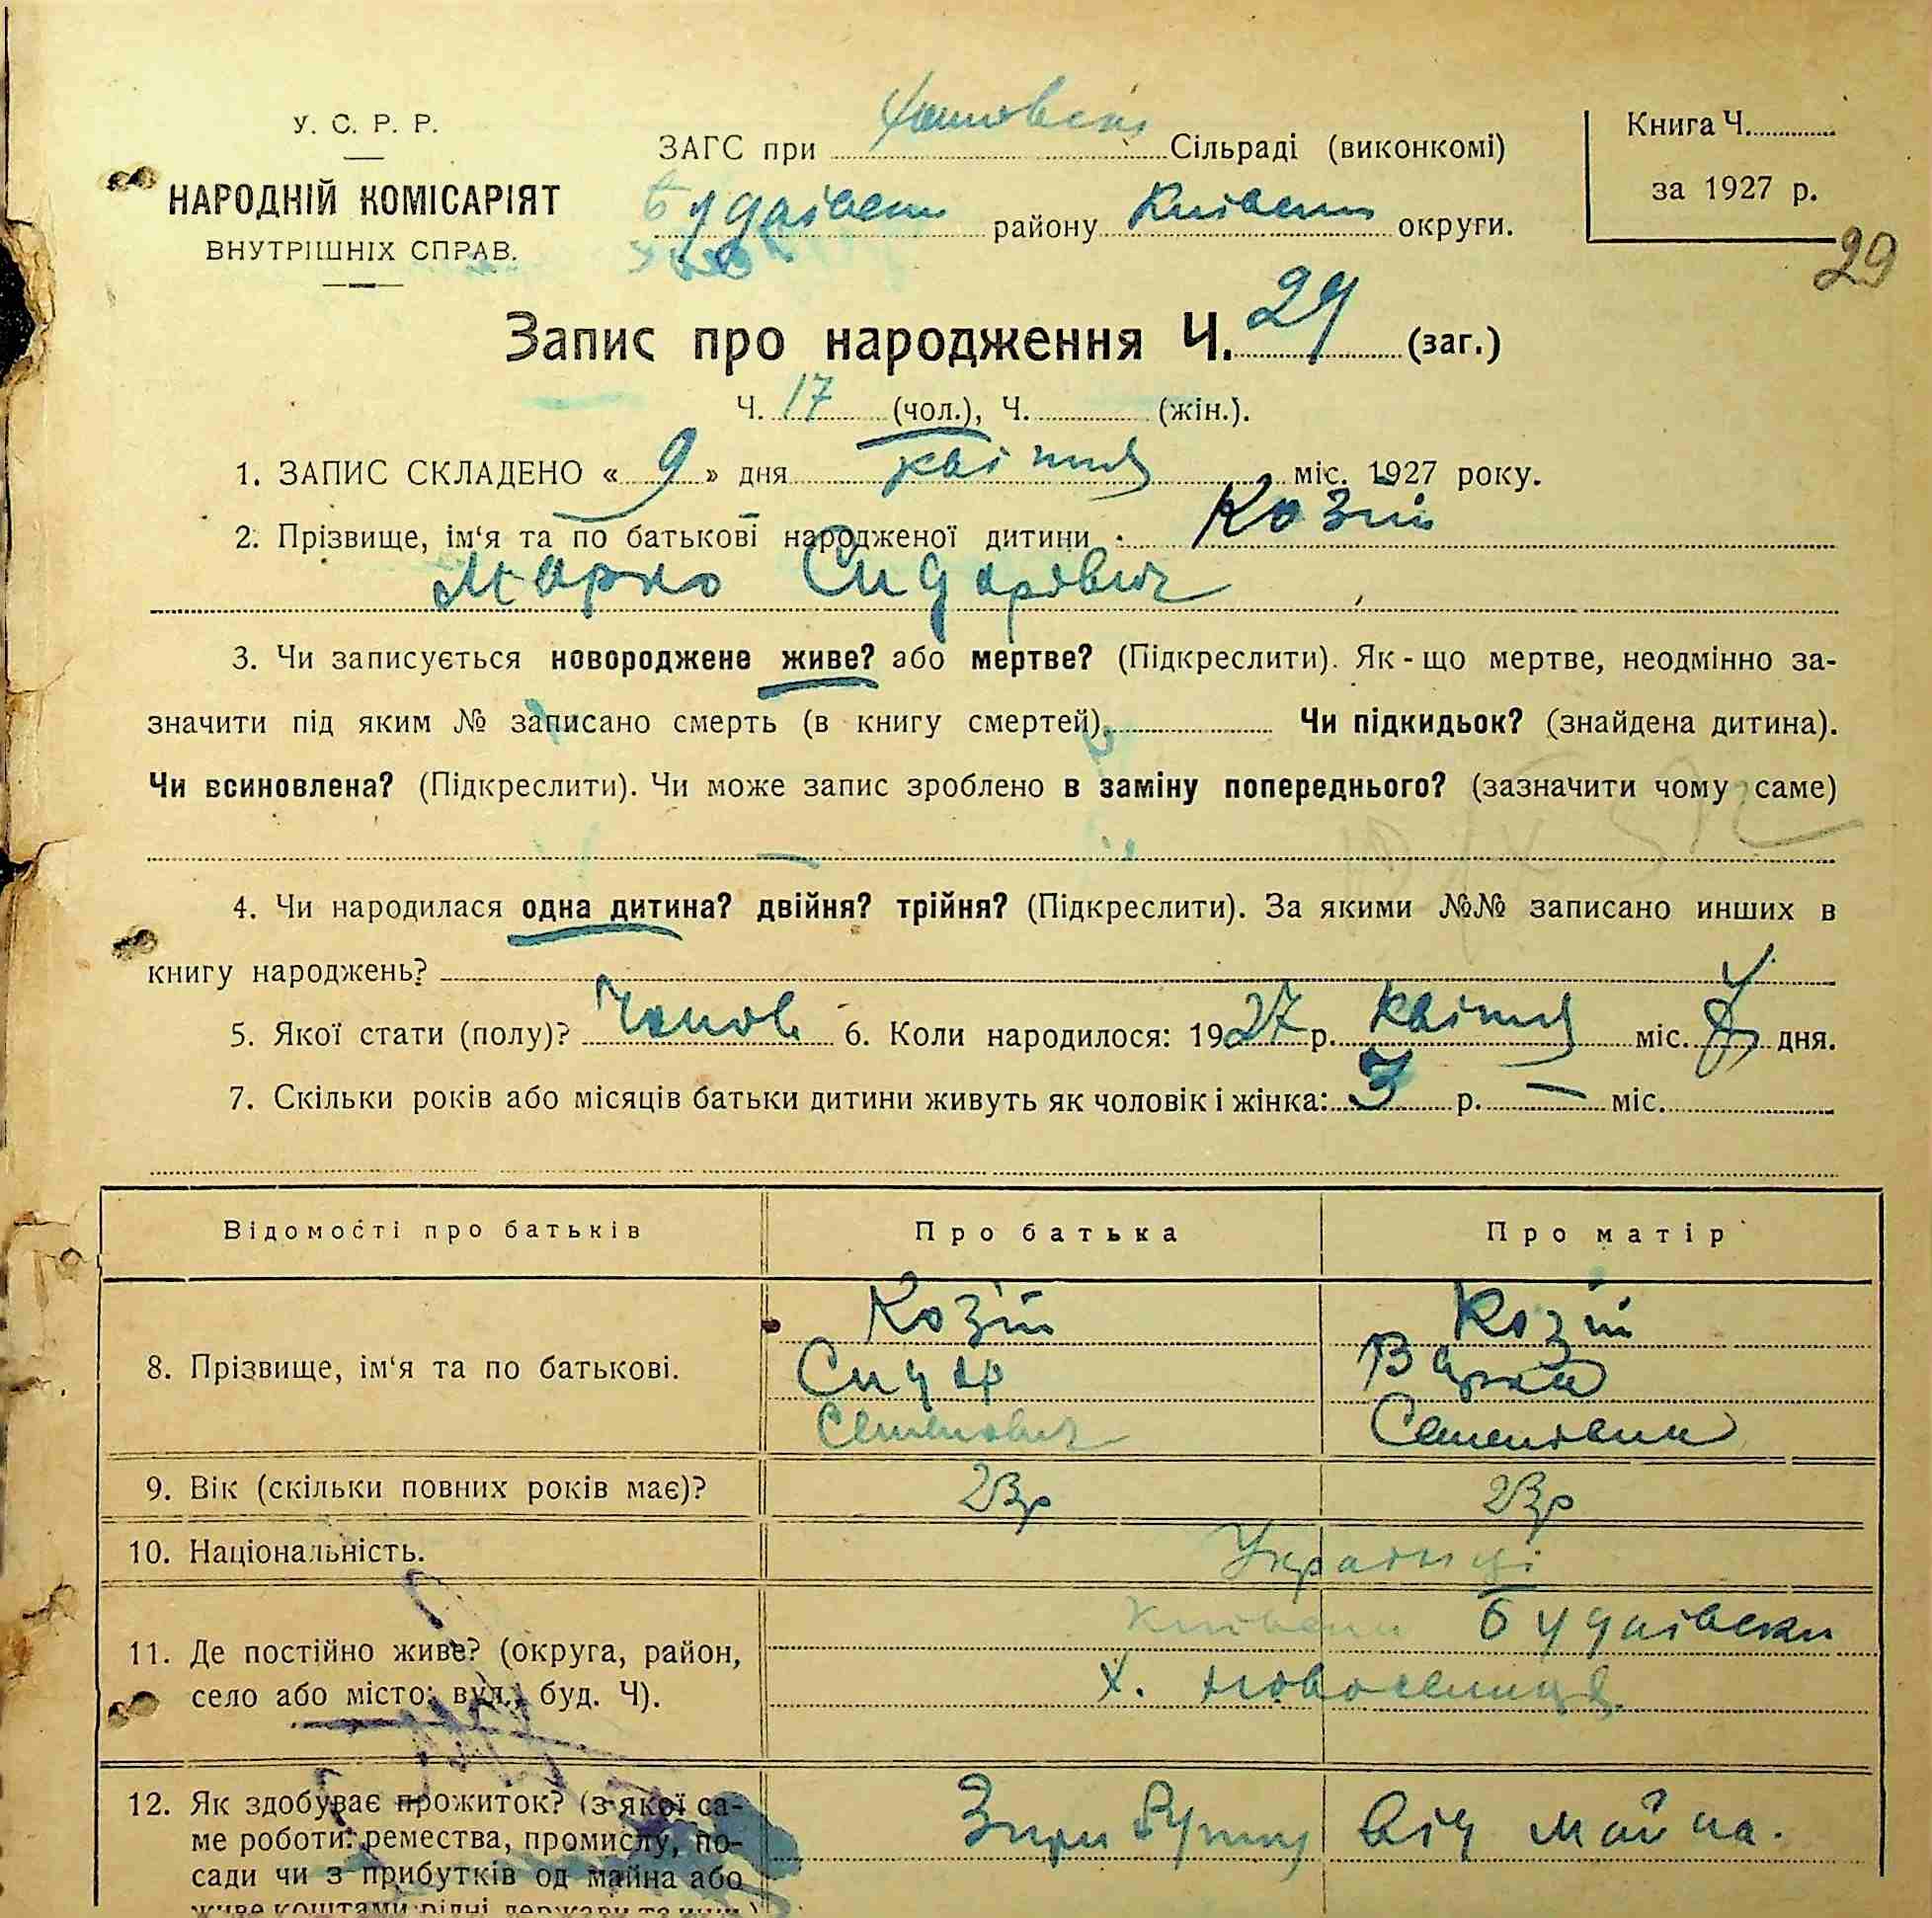 У. С. Р. Р.
НАРОДНІЙ КОМІСАРІЯТ
ВНУТРІШНІХ СПРАВ.
ЗАГС при Сільраді (виконкомі)
Будаівськ району Київськ округи.
Книга Ч.
за 1927 р.
29
Запис про народження Ч. 29 (заг.)
Ч. 17 (чол.), Ч. (жін.).
1. ЗАПИС СКЛАДЕНО « 9 » дня квітня міс. 1927 року.
2. Прізвище, ім‘я та по батькові народженої дитини Козій
Марко Сидорович
3. Чи записується новороджене живе? або мертве? (Підкреслити). Як-що мертве, неодмінно за-
значити під яким № записано смерть (в книгу смертей) Чи підкидьок? (знайдена дитина).
Чи всиновлена? (Підкреслити). Чи може запис зроблено в заміну попереднього? (зазначити чому саме)
4. Чи народилася одна дитина? двійня? трійня? (Підкреслити). За якими №№ записано инших в
книгу народжень?
5. Якої стати (полу)? Чолов 6. Коли народилося: 1927 р. квітня міс. дня.
7. Скільки років або місяців батьки дитини живуть як чоловік і жінка: 3 р. — міс.
Відомості про батьків Про батька Про матір
8. Прізвище, ім‘я та по батькові.
Козій Козій
Сидір Варка
Семенович Семеновна
9. Вік (скільки повних років має)? 23р 23р
10. Національність. Українці
11. Де постійно живе? (округа, район,
село або місто; вул., буд. Ч).
Київськ Будаівськи
х. Новоселиця
12. Як здобуває прожиток? (з якої са-
ме роботи: ремества, промислу, по-
сади чи з прибутків од майна або
живе коштами рідні, держави та инш.)
Зприбутку від майна.